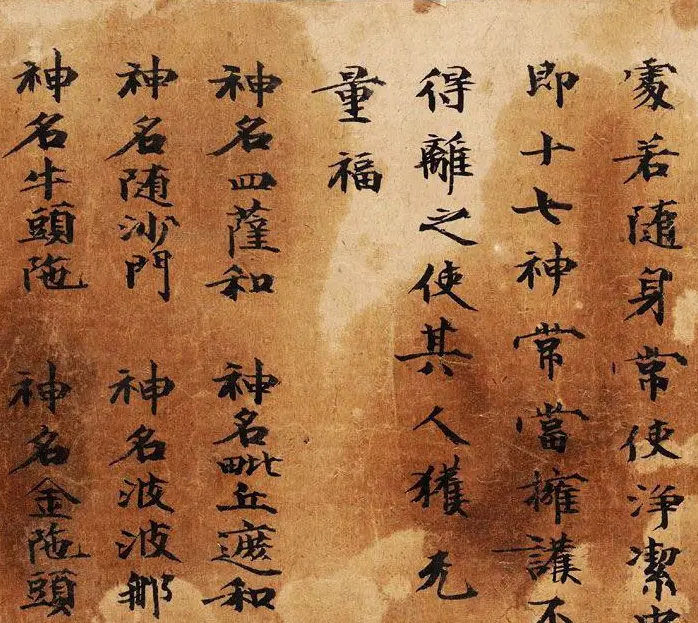 處若随身常使浄潔
即十七神常當擁護不
得離之使其人獲无
量福
神名四薩和 神名毗丘遮和
神名随沙門 神名波波那
神名牛頭陁 神名金陁頭